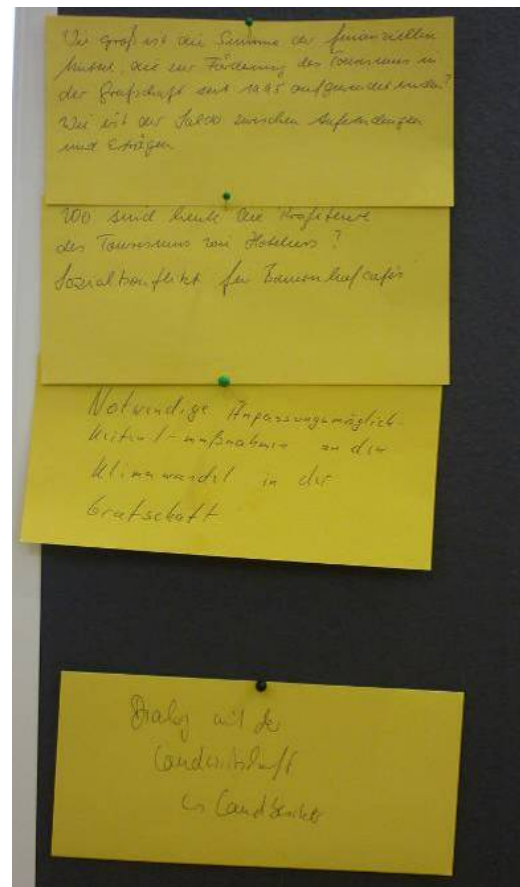 Wie groß ist die Summe der finanziellen
Mittel, die zur Förderung des Tourismus in
der Grafschaft seit 1995 aufgewendet wurden?
Wie ist der Saldo zwischen Aufwendungen
und Erträgen
Wo sind heute die Profiteure
des Tourismus von Hoteliers?
Sozialkonflikt für Bauernhofcafés
Notwendige Anpassungsmöglich-
keiten/-maßnahmen an den
Klimawandel in der
Grafschaft
Dialog mit der
Landwirtschaft